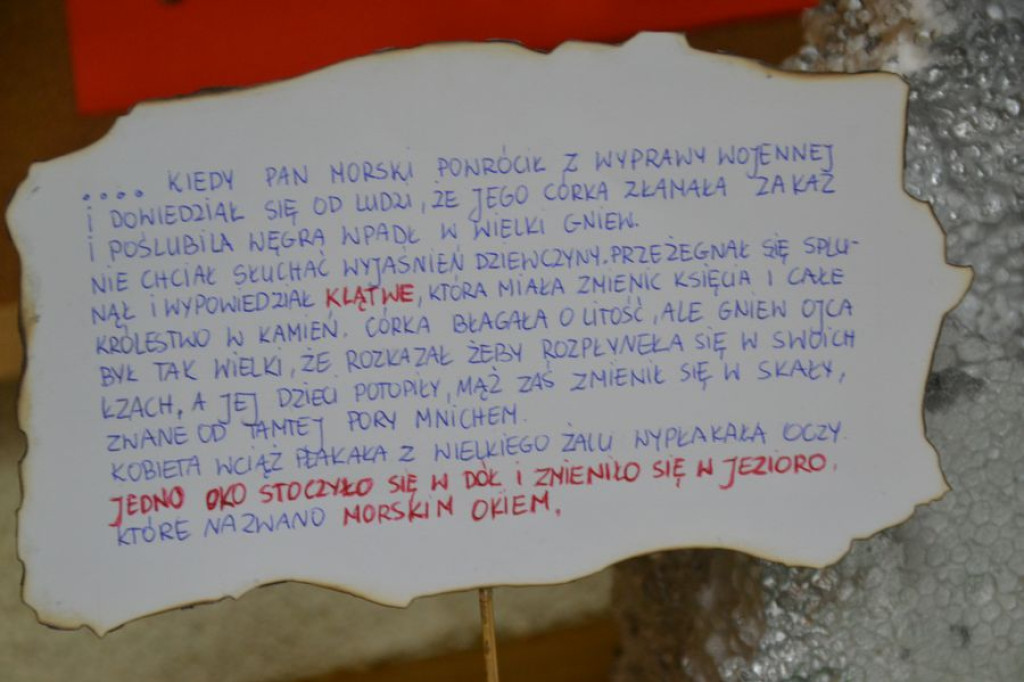 .... KIEDY PAN MORSKI POWRÓCIŁ Z WYPRAWY WOJENNEJ
I DOWIEDZIAŁ SIĘ OD LUDZI, ŻE JEGO CÓRKA ZŁAMAŁA ZAKAZ
I POŚLUBIŁA WĘGRA WPADŁ W WIELKI GNIEW.
NIE CHCIAŁ SŁUCHAĆ WYJAŚNIEŃ DZIEWCZYNY. PRZEŻEGNAŁ SIĘ SPLU-
NĄŁ I WYPOWIEDZIAŁ KLĄTWE, KTÓRA MIAŁA ZMIENIĆ KSIĘCIA I CAŁE
KRÓLESTWO W KAMIEŃ. CÓRKA BŁAGAŁA O LITOŚĆ, ALE GNIEW OJCA
BYŁ TAK WIELKI, ŻE ROZKAZAŁ ŻEBY ROZPŁYNEŁA SIĘ W SWOICH
ŁZACH, A JEJ DZIECI POTOPIŁY, MĄŻ ZAŚ ZMIENIŁ SIĘ W SKAŁY,
ZWANE OD TAMTEJ PORY MNICHEM.
KOBIETA WCIĄŻ PŁAKAŁA Z WIELKIEGO ŻALU WYPŁAKAŁA OCZY.
JEDNO OKO STOCZYŁO SIĘ W DÓŁ I ZMIENIŁO SIĘ W JEZIORO,
KTÓRE NAZWANO MORSKIM OKIEM.